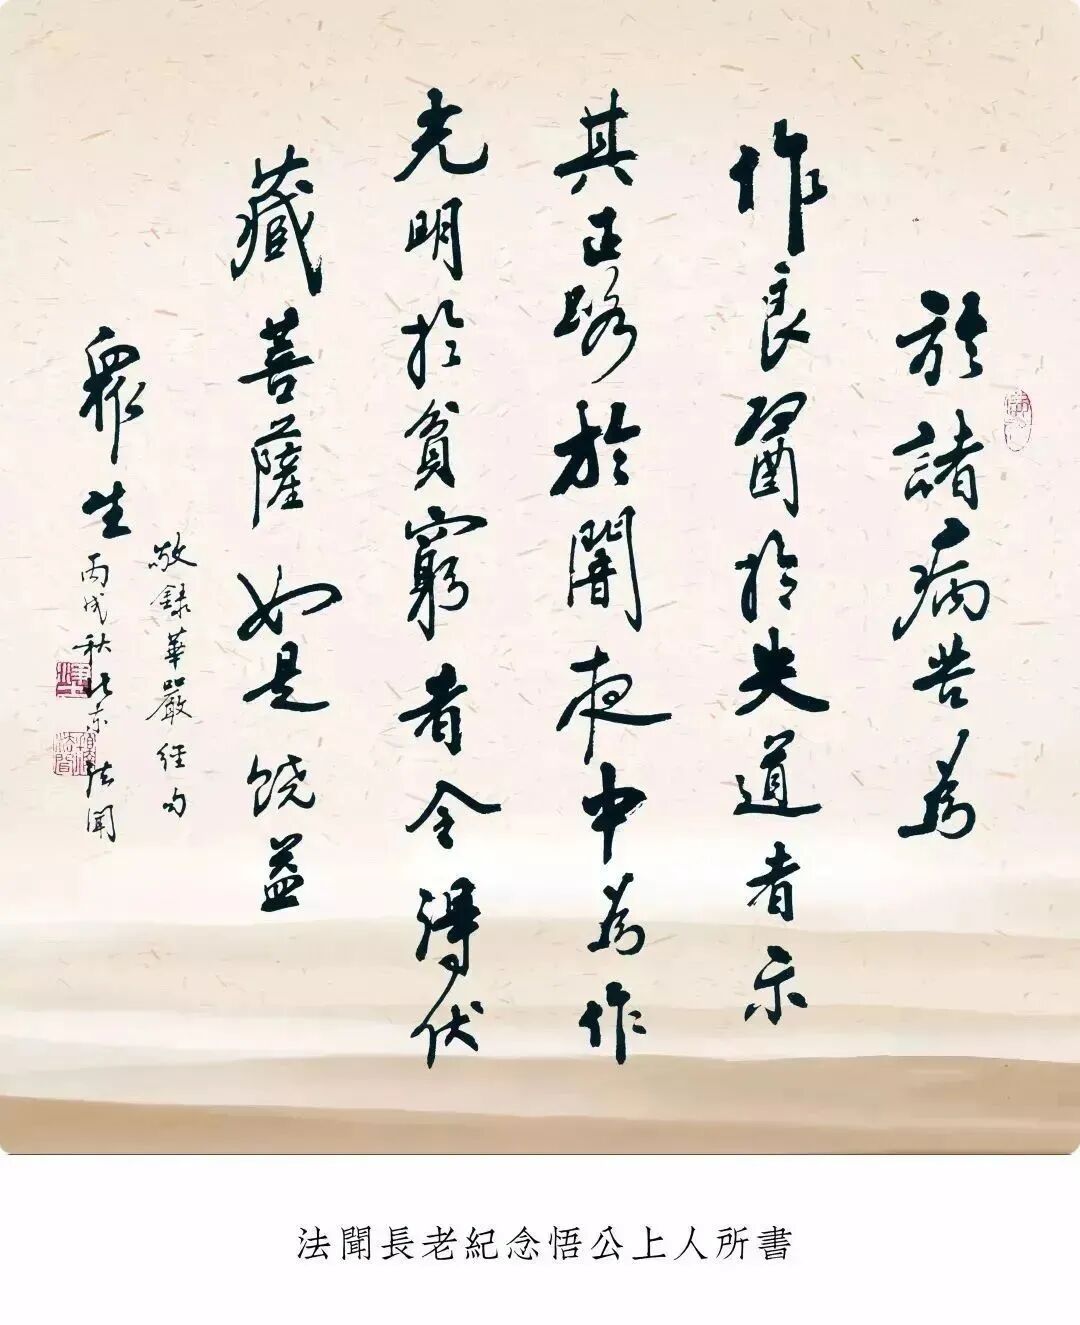 於諸病苦為
作良醫於失道者示
其正路於闇夜中為作
光明於貧窮者令得伏
藏菩薩如是饒益
眾生
敬錄華嚴經句
丙戌秋北京法聞
法聞長老紀念悟公上人所書